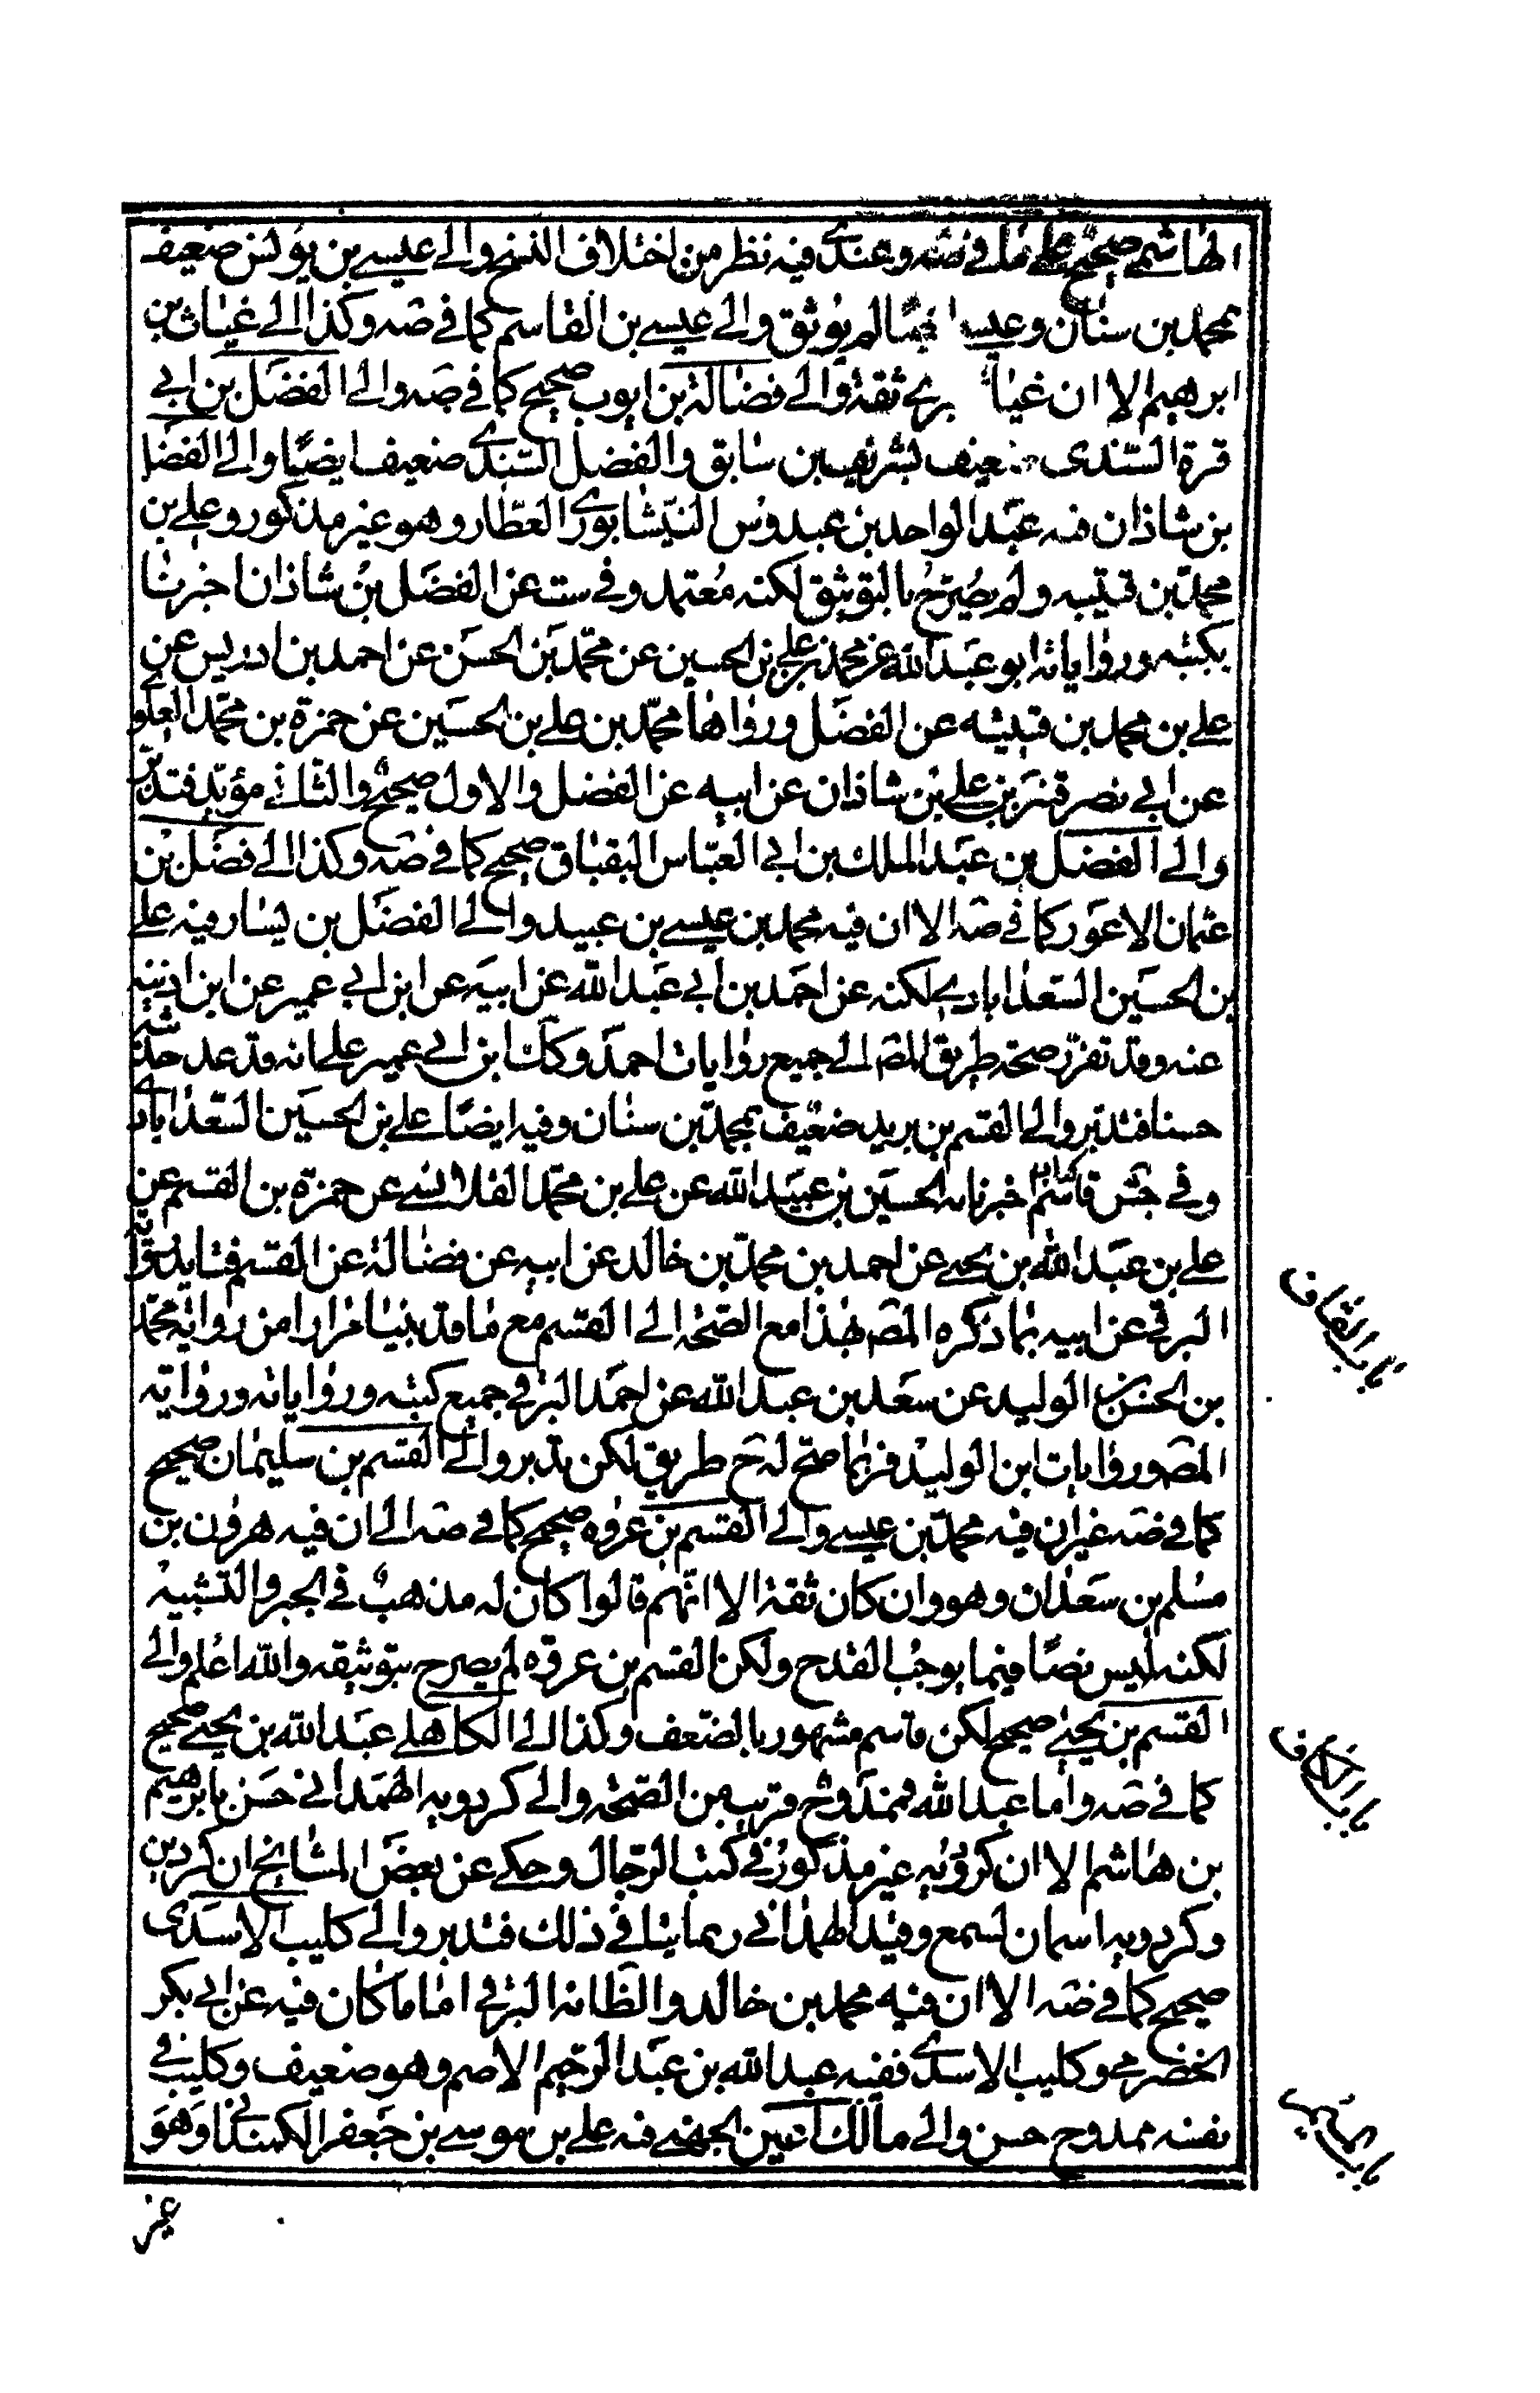 الهاشمي صحيح على ما في صه وعندي فيه نظر من اختلاف النسخ والى عيسى بن يونس ضعيف
بمحمد بن سنان وعيسى ايضا لم يوثق والى عيسى بن القاسم كما في صه وكذا الى غياث بن
ابرهيم الا ان غياثا بتري ثقة والى فضالة بن ايوب صحيح كما في صه والى الفضل بن ابي
قرة السندى ضعيف بشريف بن سابق والفضل السندي ضعيف ايضا والى الفضل
بن شاذان فيه عبد الواحد بن عبدوس النيشابوري العطار وهو غير مذكور وعلي بن
محمد بن قتيبه ولم يصرح بالتوثيق لكنه معتمد وفي ست عن الفضل بن شاذان اخبرنا
بكتبه ورواياته ابو عبد الله عن محمد بن علي بن الحسين عن محمد بن الحسن عن احمد بن ادريس عن
علي بن محمد بن قتيبه عن الفضل ورواها محمد بن علي بن الحسين عن حمزة بن محمد العلوي
عن ابي نصر قنبر بن علي بن شاذان عن ابيه عن الفضل والاول صحيح والثاني مؤيد فتدبر
والى الفضل بن عبد الملك بن ابي العباس البقباق صحيح كما في صه وكذا الى فضل بن
عثمان الاعور كما في صه الا ان فيه محمد بن عيسى بن عبيد والى الفضل بن يسار فيه علي
بن الحسين السعدابادي لكنه عن احمد بن ابي عبد الله عن ابيه عن ابن ابي عمير عن ابن اذينه
عنه وقد تفرد صحة طريق المص الى جميع روايات احمد وكك ابن ابي عمير على انه قد عد حديثه
حسنا فتدبر والى القسم بن بريد ضعيف بمحمد بن سنان وفيه ايضا علي بن الحسين السعدابادي
وفي جش قاسم كتابه اخبرنا به الحسين بن عبيد الله عن علي بن محمد القلانسي عن حمزة بن القسم عن
علي بن عبد الله بن يحيى عن احمد بن محمد بن خالد عن ابيه عن فضالة عن القسم فتايد رواية
البرقي عن ابيه بما ذكره المص بهذا مع الصحة الى القسم مع ما قد بينا مرارا من رواية محمد
بن الحسن بن الوليد عن سعد بن عبد الله عن احمد البرقي جميع كتبه ورواياته ورواية
المص وروايات ابن الوليد فربما صح له ح طريق لكن تدبر والى القسم بن سليمان صحيح
كما في صه غير ان فيه محمد بن عيسى والى القسم بن عروه صحيح كما في صه الى ان فيه هرون بن
مسلم بن سعدان وهو وان كان ثقة الا انهم قالوا كان له مذهب في الجبر والتشبيه
لكنه ليس نصا فيما يوجب القدح ولكن القسم بن عروه لم يصرح بتوثيقه والله اعلم والى
القسم بن يحيى صحيح لكن قاسم مشهور بالضعف وكذا الى الكاهلي عبد الله بن يحيى صحيح
كما في صه واما عبد الله فممدوح قريب من الصحة والى كردويه الهمداني حسن بابرهيم
بن هاشم الا ان كردويه غير مذكور في كتب الرجال وحكي عن بعض المشايخ ان كردين
وكردويه اسمان لسمع وقيد الهمداني ربما ينافي ذلك فتدبر والى كليب الاسدى
صحيح كما في صه الا ان فيه محمد بن خالد والظ انه البرقي اما ما كان فيه عن ابي بكر
الحضرمي وكليب الاسدي ففيه عبد الله بن عبد الرحيم الاصم وهو ضعيف وكليب في
نفسه ممدوح حسن والى مالك اعين الجهني فيه علي بن موسى بن جعفر الكمنداني وهو
غير
باب القاف
باب الكاف
باب الميم